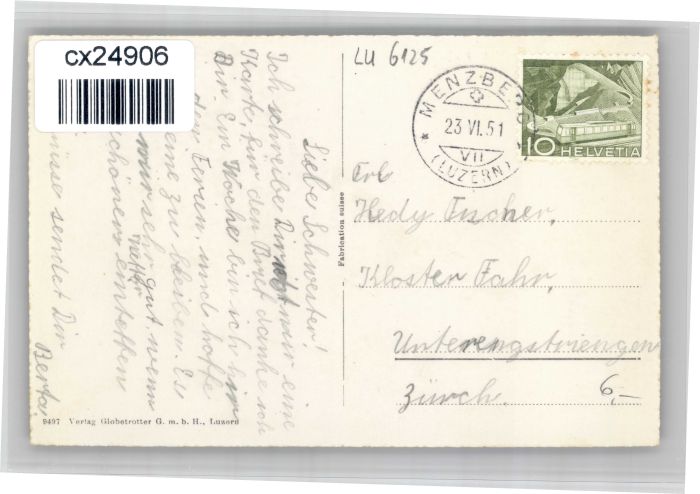 cx24906
LU 6125
MENZBERG
23.VI.51
VII
(LUZERN)
10 HELVETIA
Frl
Hedy Fischer,
Kloster Fahr,
Unterengstringen
Zürich.
6,–
Fabrication suisse
Liebe Schwester!
Ich schreibe Dir nur eine
Karte, für den Brief danke ich
Dir. Ein Woche bin ich hier
den Ferien, und hoffe
eine zu bleiben. Es
mir sehr gut, wenn
netter
schöner eintreffen
sendet Dir
Berta.
9497 Verlag Globetrotter G. m. b. H., Luzern